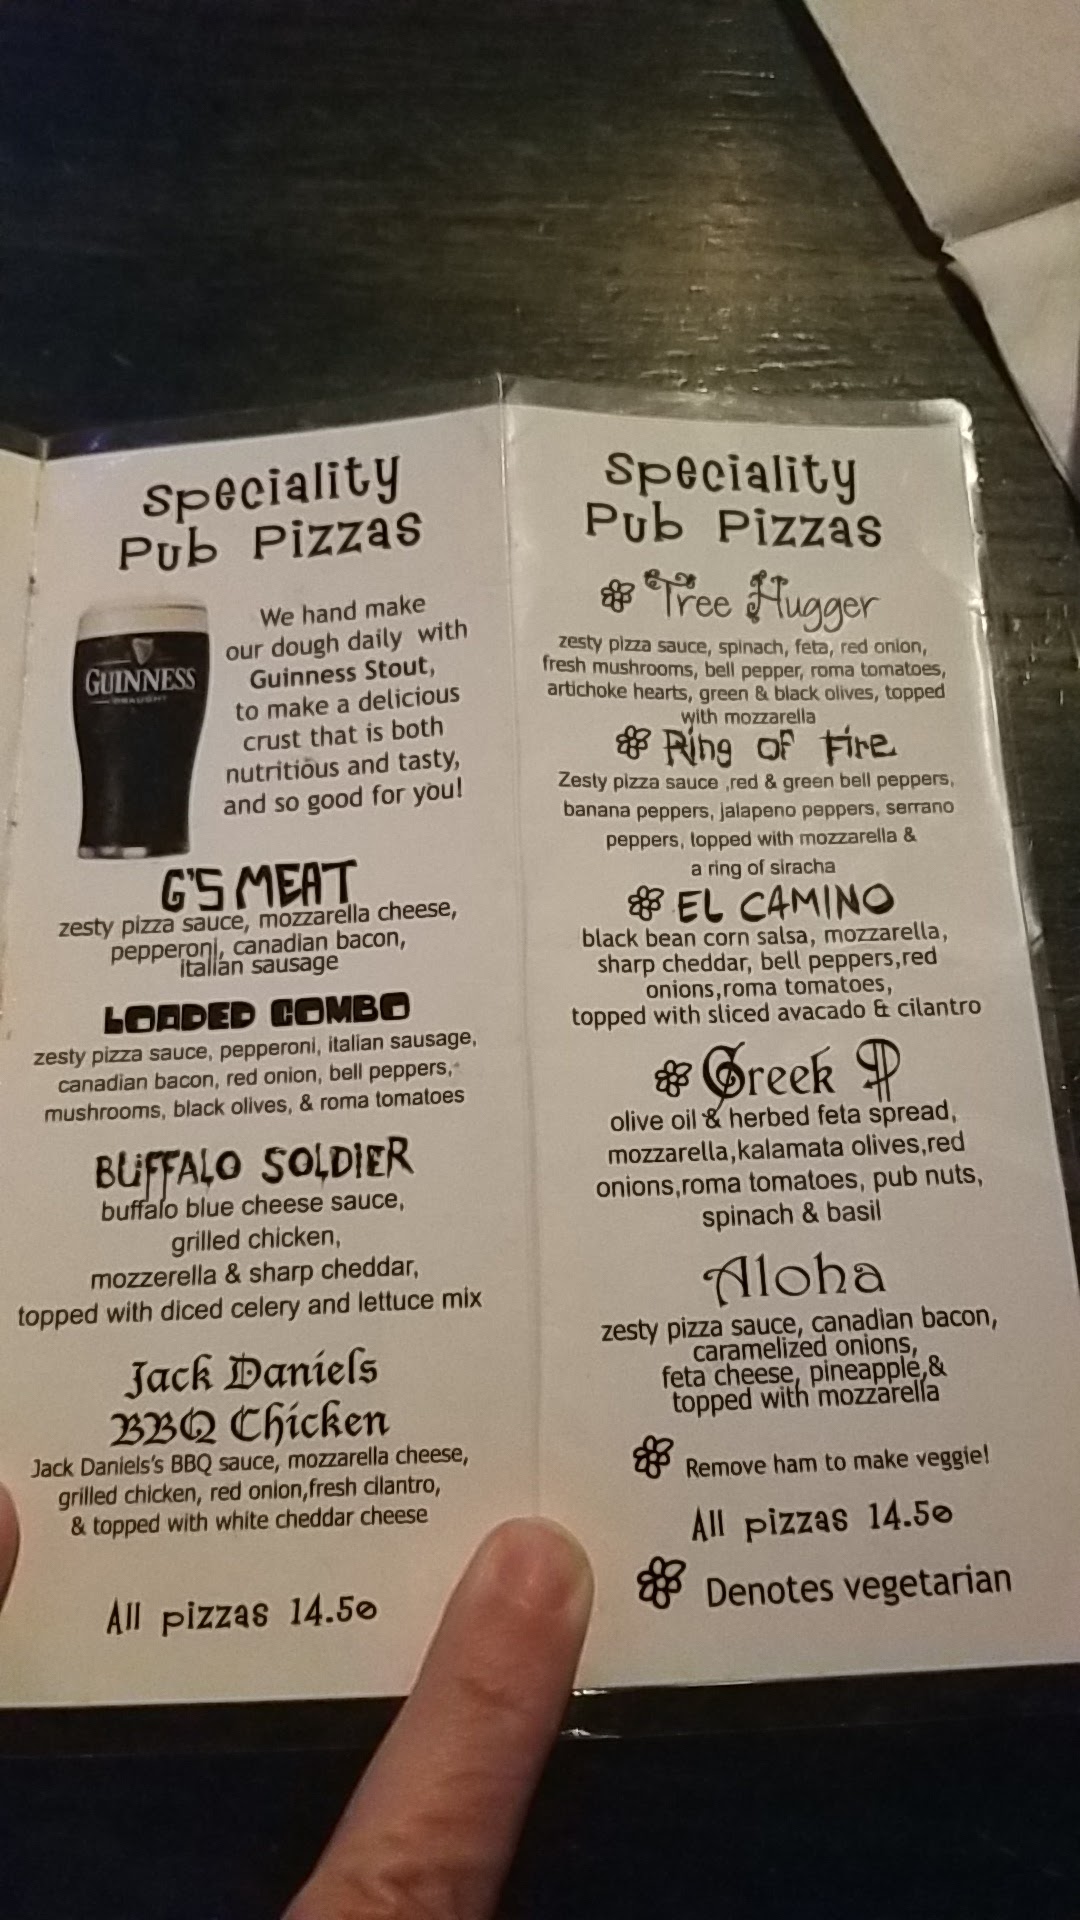 Speciality
Pub Pizzas
GUINNESS
DRAUGHT
We hand make
our dough daily with
Guinness Stout,
to make a delicious
crust that is both
nutritious and tasty,
and so good for you!
G'S MEAT
zesty pizza sauce, mozzarella cheese,
pepperoni, canadian bacon,
italian sausage
LOADED COMBO
zesty pizza sauce, pepperoni, italian sausage,
canadian bacon, red onion, bell peppers,
mushrooms, black olives, & roma tomatoes
BUFFALO SOLDIER
buffalo blue cheese sauce,
grilled chicken,
mozzerella & sharp cheddar,
topped with diced celery and lettuce mix
Jack Daniels
BBQ Chicken
Jack Daniels's BBQ sauce, mozzarella cheese,
grilled chicken, red onion,fresh cilantro,
& topped with white cheddar cheese
All pizzas 14.50
Speciality
Pub Pizzas
Tree Hugger
zesty pizza sauce, spinach, feta, red onion,
fresh mushrooms, bell pepper, roma tomatoes,
artichoke hearts, green & black olives, topped
with mozzarella
Ring of Fire
Zesty pizza sauce ,red & green bell peppers,
banana peppers, jalapeno peppers, serrano
peppers, topped with mozzarella &
a ring of siracha
EL CAMINO
black bean corn salsa, mozzarella,
sharp cheddar, bell peppers,red
onions,roma tomatoes,
topped with sliced avacado & cilantro
Greek P
olive oil & herbed feta spread,
mozzarella,kalamata olives,red
onions,roma tomatoes, pub nuts,
spinach & basil
Aloha
zesty pizza sauce, canadian bacon,
caramelized onions,
feta cheese, pineapple,&
topped with mozzarella
Remove ham to make veggie!
All pizzas 14.50
Denotes vegetarian